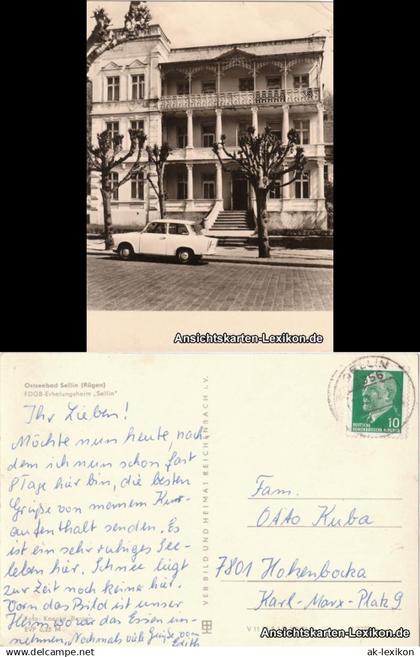 Ansichtskarten-Lexikon.de
Ostseebad Sellin (Rügen)
FDGB-Erholungsheim „Sellin"
Ihr Lieben!
Möchte nun heute, nach
dem ich nun schon fast
8 Tage hier bin, die besten
Grüße von meinem Kur=
aufenthalt senden. Es
ist ein sehr ruhiges See=
leben hier. Schnee liegt
zur Zeit noch keine hier.
Vorn das Bild ist unser
Heim wo wir das Essen ein=
nehmen. Nochmals viele Grüße von
Edith
VEB BILD UND HEIMAT REICHENBACH I. V.
SELLIN
DEUTSCHE
DEMOKRATISCHE REPUBLIK
10
Fam.
Otto Kuba
7801 Hohenbocka
Karl-Marx-Platz 9
Ansichtskarten-Lexikon.de
© www.ak-lexikon.de